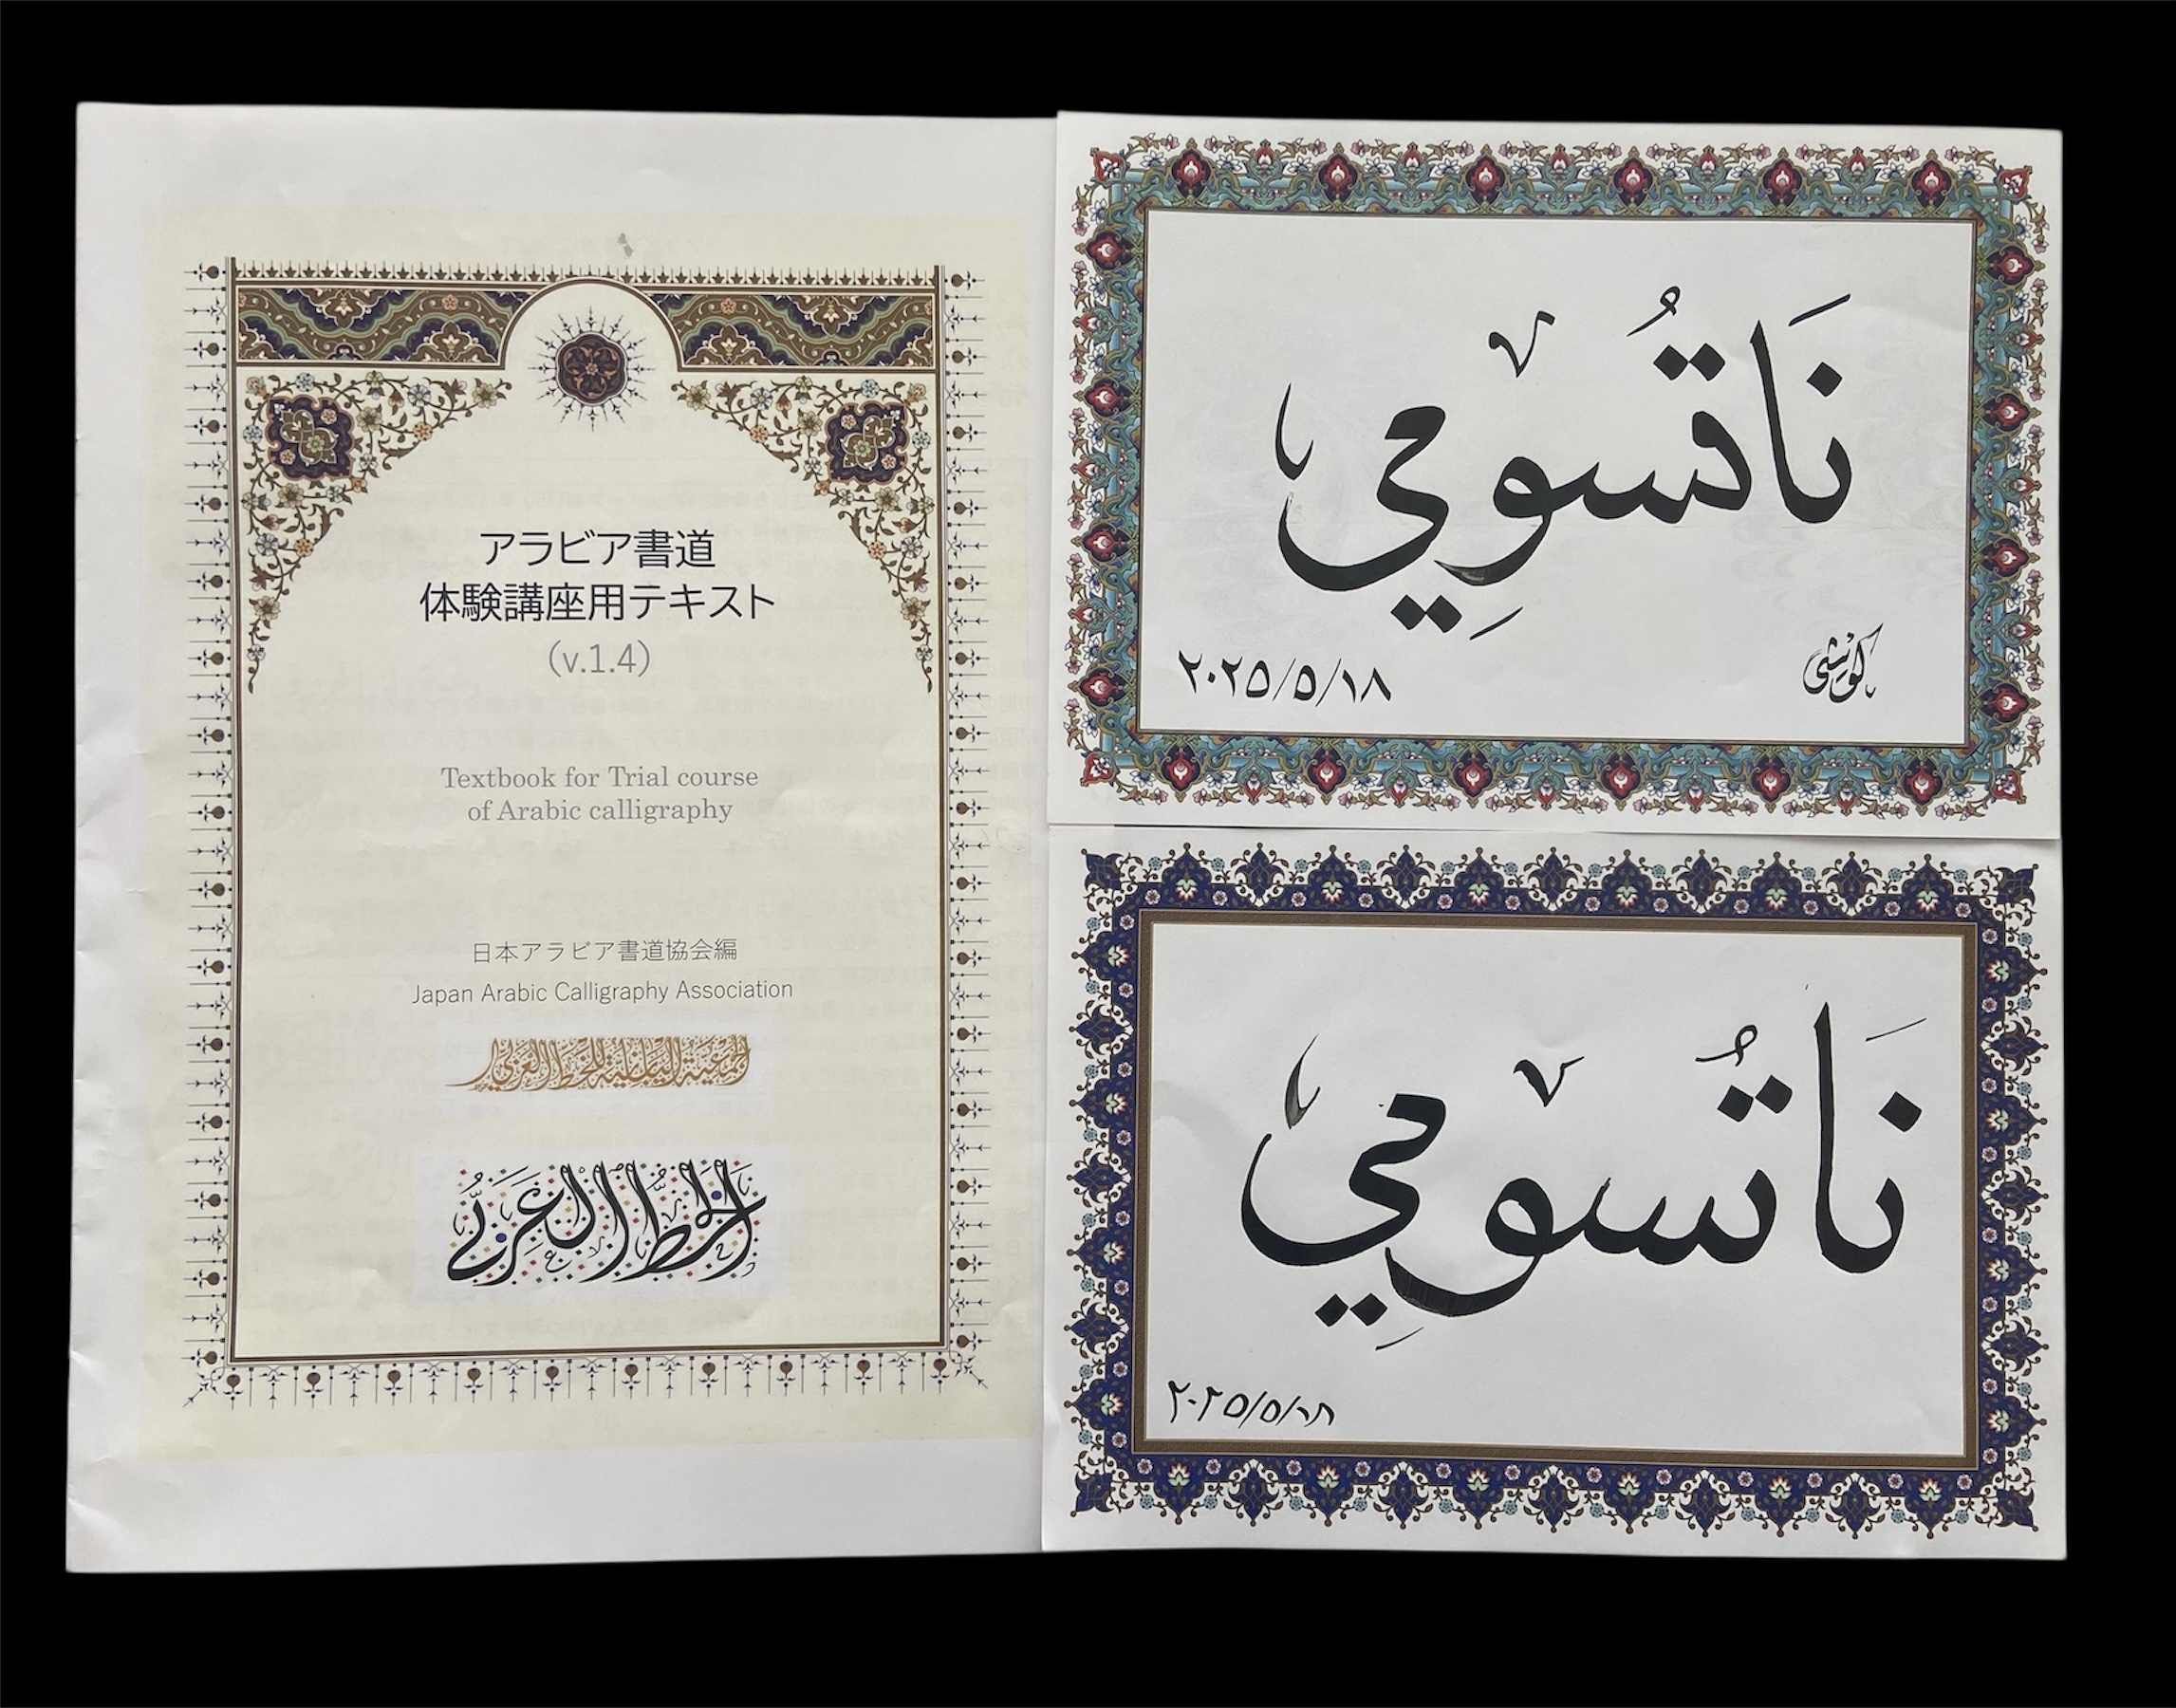 アラビア書道
体験講座用テキスト
(v.1.4)
Textbook for Trial course
of Arabic calligraphy
日本アラビア書道協会編
Japan Arabic Calligraphy Association
الجمعية اليابانية للخط العربي
الخط العربي
نَاتسُومِي
٢٠٢٥/٥/١٨
نَاتسُومِي
٢٠٢٥/٥/١٨